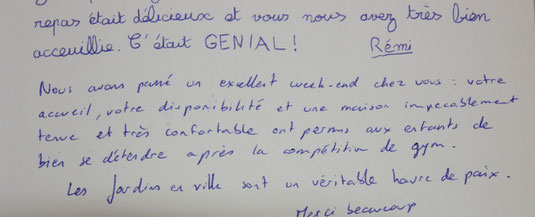 repas était délicieux et vous nous avez très bien
acceuillie. C'était GENIAL !
Rémi
Nous avons passé un excellent week-end chez vous : votre
accueil, votre disponibilité et une maison impeccablement
tenue et très confortable ont permis aux enfants de
bien se détendre après la compétition de gym.
Les Jardins en ville sont un véritable havre de paix.
Merci beaucoup